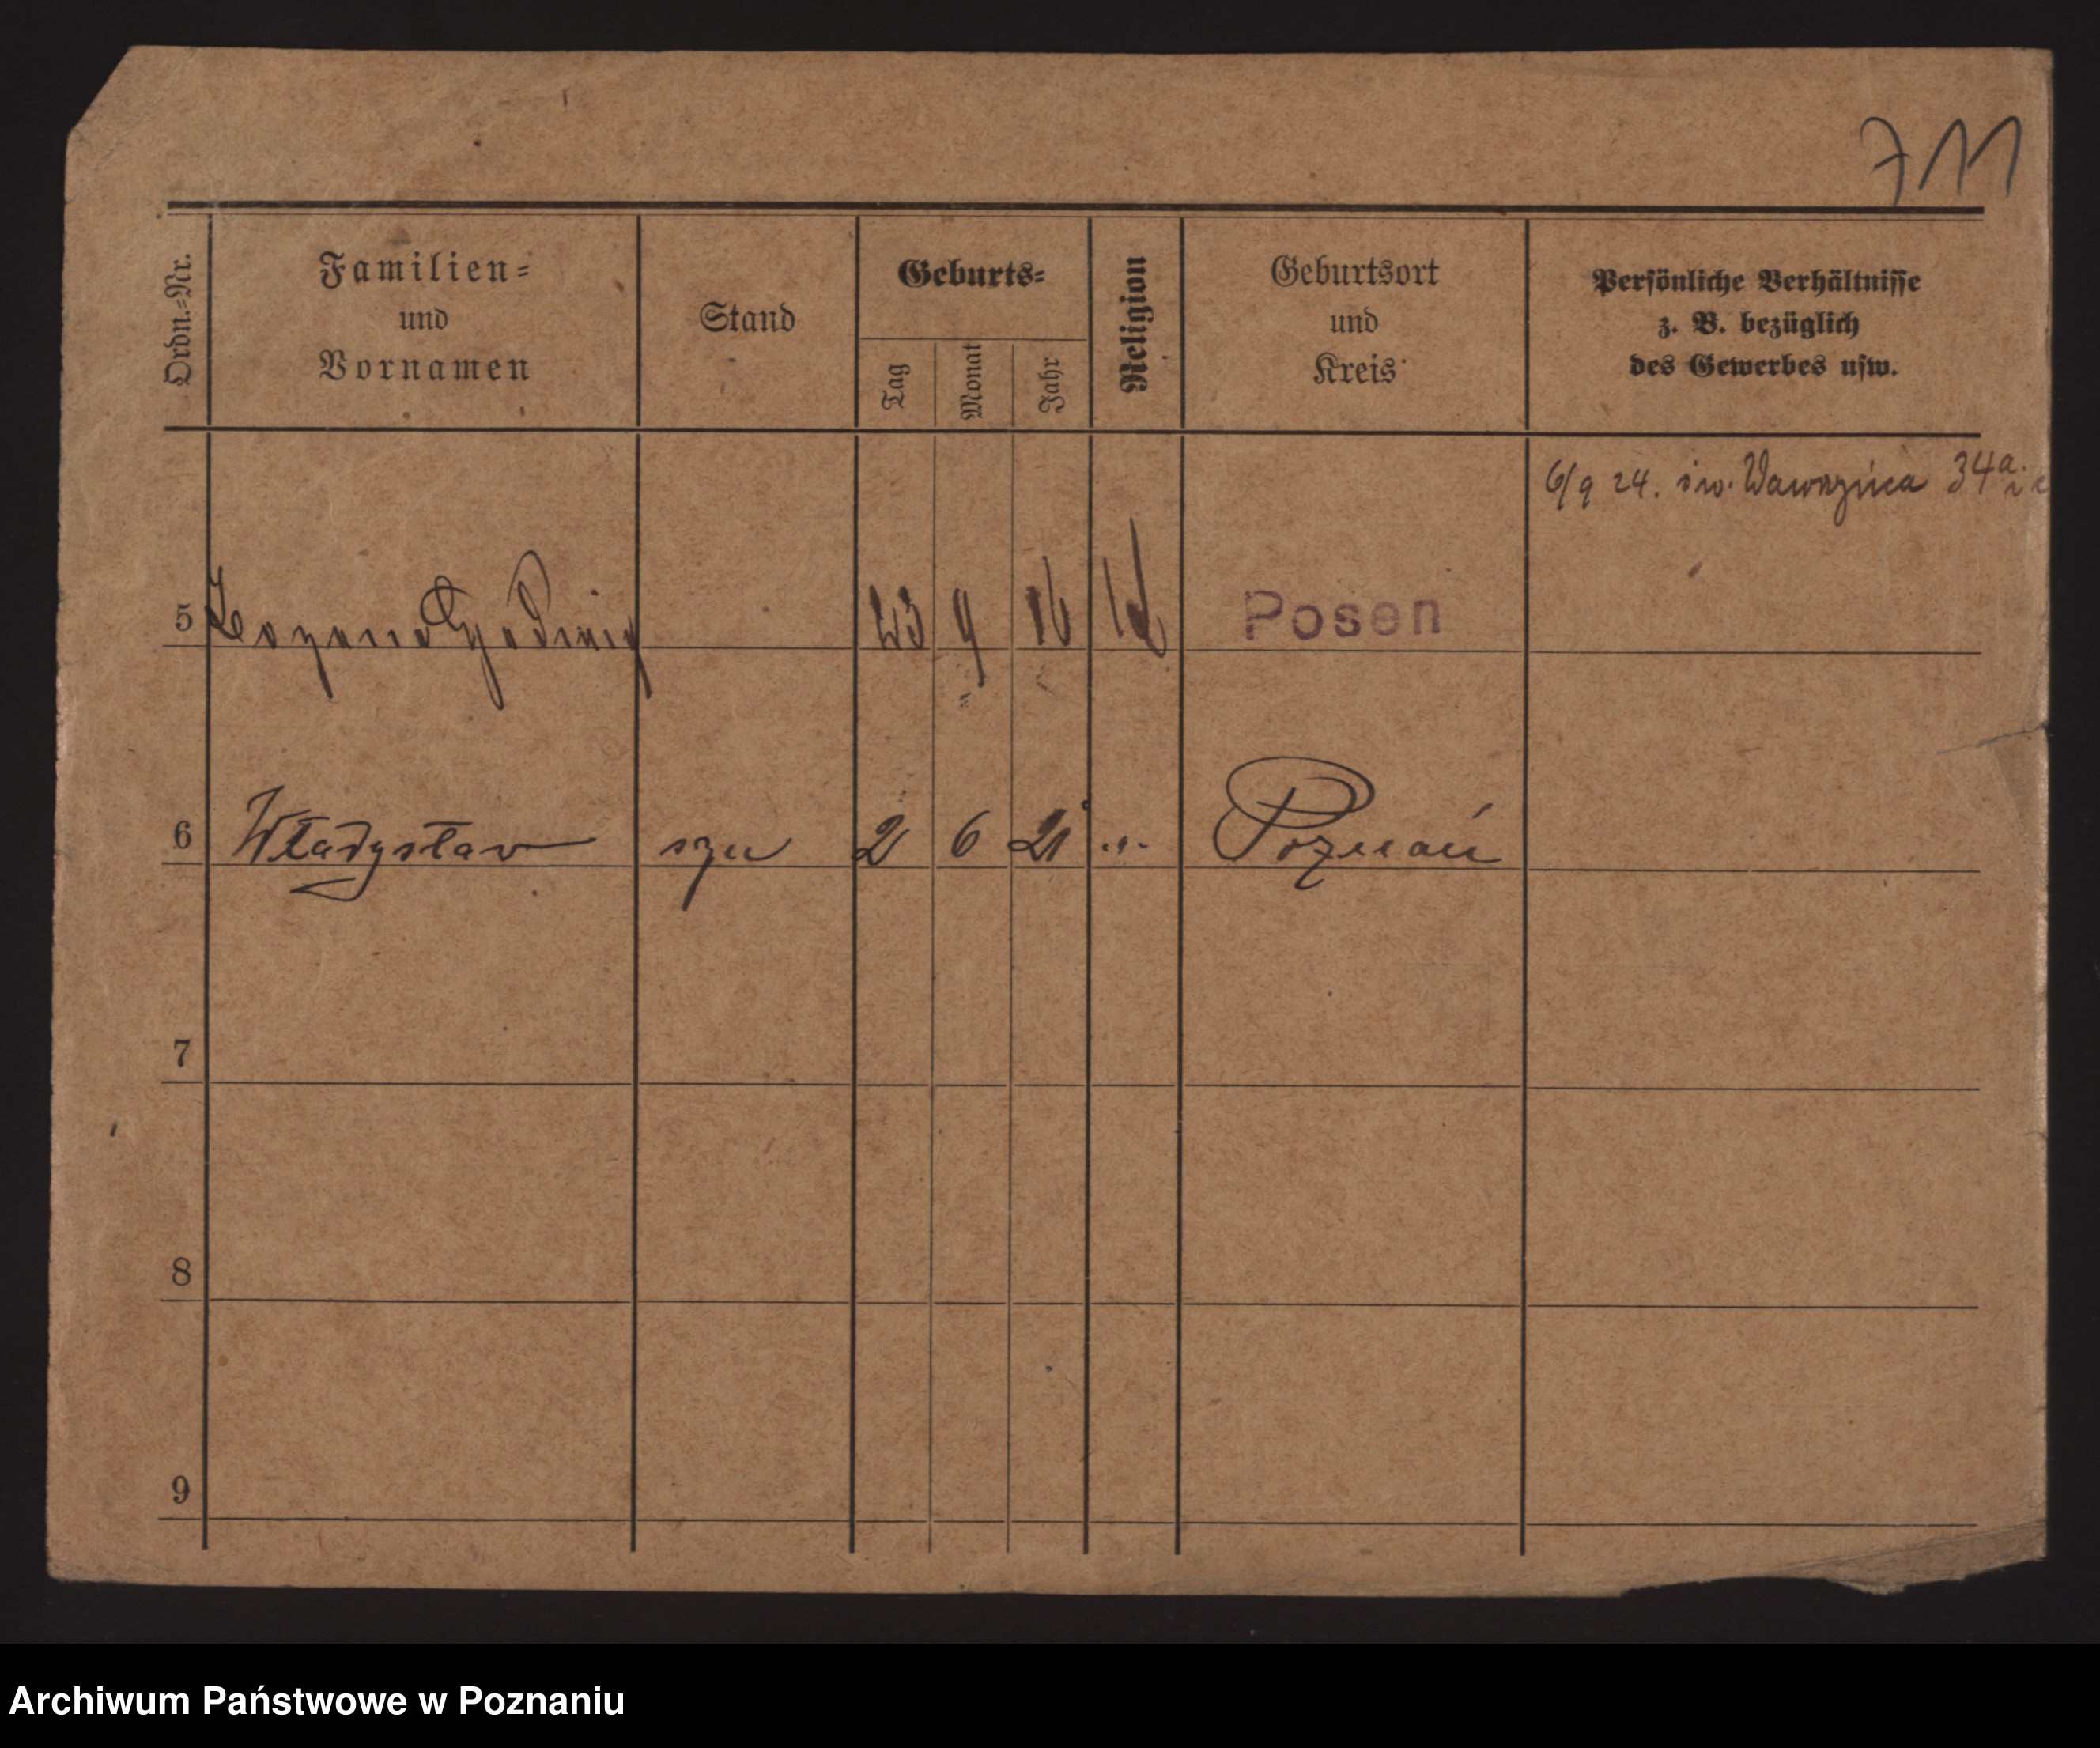 711
Ordn.-Nr.
Familien-
und
Vornamen
Stand
Geburts-
Tag
Monat
Jahr
Religion
Geburtsort
und
Kreis
Persönliche Verhältnisse
z. B. bezüglich
des Gewerbes usw.
6/9 24. św. Wawrzyńca 34a.
5 23 9 16 Posen
6 Władysław syn 2 6 21 " Poznań
7
8
9
Archiwum Państwowe w Poznaniu